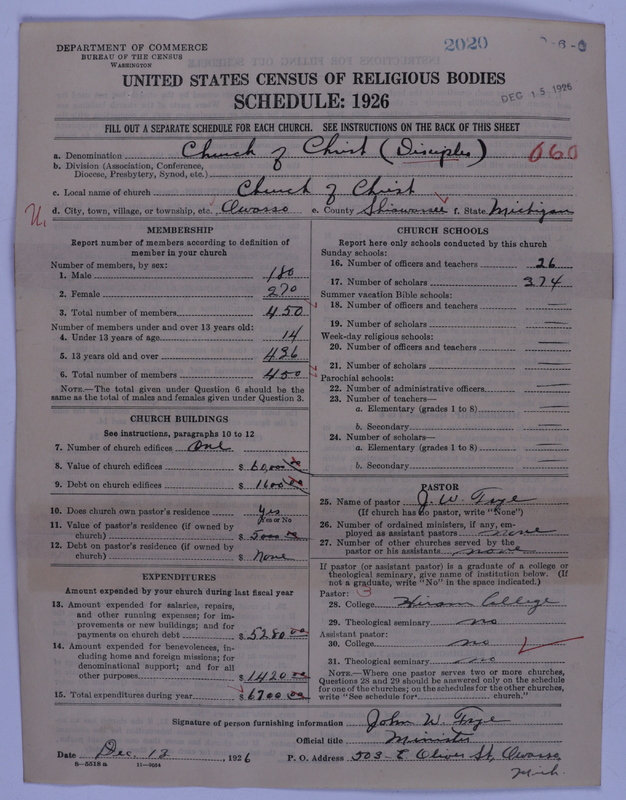 2020
DEPARTMENT OF COMMERCE
BUREAU OF THE CENSUS
WASHINGTON
UNITED STATES CENSUS OF RELIGIOUS BODIES
SCHEDULE: 1926
DEC 15 1926
FILL OUT A SEPARATE SCHEDULE FOR EACH CHURCH. SEE INSTRUCTIONS ON THE BACK OF THIS SHEET
a. Denomination Church of Christ (Disciples) 060
b. Division (Association, Conference,
Diocese, Presbytery, Synod, etc.)
c. Local name of church Church of Christ
d. City, town, village, or township, etc. Owosso e. County Shiawassee f. State Michigan
MEMBERSHIP
Report number of members according to definition of
member in your church
Number of members, by sex:
1. Male 180
2. Female 270
3. Total number of members 450
Number of members under and over 13 years old:
4. Under 13 years of age 14
5. 13 years old and over 436
6. Total number of members 450
NOTE.—The total given under Question 6 should be the
same as the total of males and females given under Question 3.
CHURCH BUILDINGS
See instructions, paragraphs 10 to 12
7. Number of church edifices one
8. Value of church edifices $ 60,000 00
9. Debt on church edifices $ 1600 00
10. Does church own pastor's residence Yes
(Yes or No)
11. Value of pastor's residence (if owned by
church) $ 5000 00
12. Debt on pastor's residence (if owned by
church) $ None
EXPENDITURES
Amount expended by your church during last fiscal year
13. Amount expended for salaries, repairs,
and other running expenses; for im-
provements or new buildings; and for
payments on church debt $ 5280 00
14. Amount expended for benevolences, in-
cluding home and foreign missions; for
denominational support; and for all
other purposes $ 1420 00
15. Total expenditures during year $ 6700 00
CHURCH SCHOOLS
Report here only schools conducted by this church
Sunday schools:
16. Number of officers and teachers 26
17. Number of scholars 374
Summer vacation Bible schools:
18. Number of officers and teachers —
19. Number of scholars —
Week-day religious schools:
20. Number of officers and teachers —
21. Number of scholars —
Parochial schools:
22. Number of administrative officers —
23. Number of teachers—
a. Elementary (grades 1 to 8) —
b. Secondary —
24. Number of scholars—
a. Elementary (grades 1 to 8) —
b. Secondary —
PASTOR
25. Name of pastor J. W. Frye
(If church has no pastor, write "None")
26. Number of ordained ministers, if any, em-
ployed as assistant pastors none
27. Number of other churches served by the
pastor or his assistants none
If pastor (or assistant pastor) is a graduate of a college or
theological seminary, give name of institution below. (If
not a graduate, write "No" in the space indicated.)
Pastor: 3
28. College Hiram College
29. Theological seminary no
Assistant pastor:
30. College no
31. Theological seminary no
NOTE.—Where one pastor serves two or more churches,
Questions 28 and 29 should be answered only on the schedule
for one of the churches; on the schedules for the other churches,
write "See schedule for church."
Signature of person furnishing information John W. Frye
Official title Minister
Date Dec. 12, 1926 P. O. Address 503 E Oliver St, Owosso,
Mich.
8—5518 a 11—9034